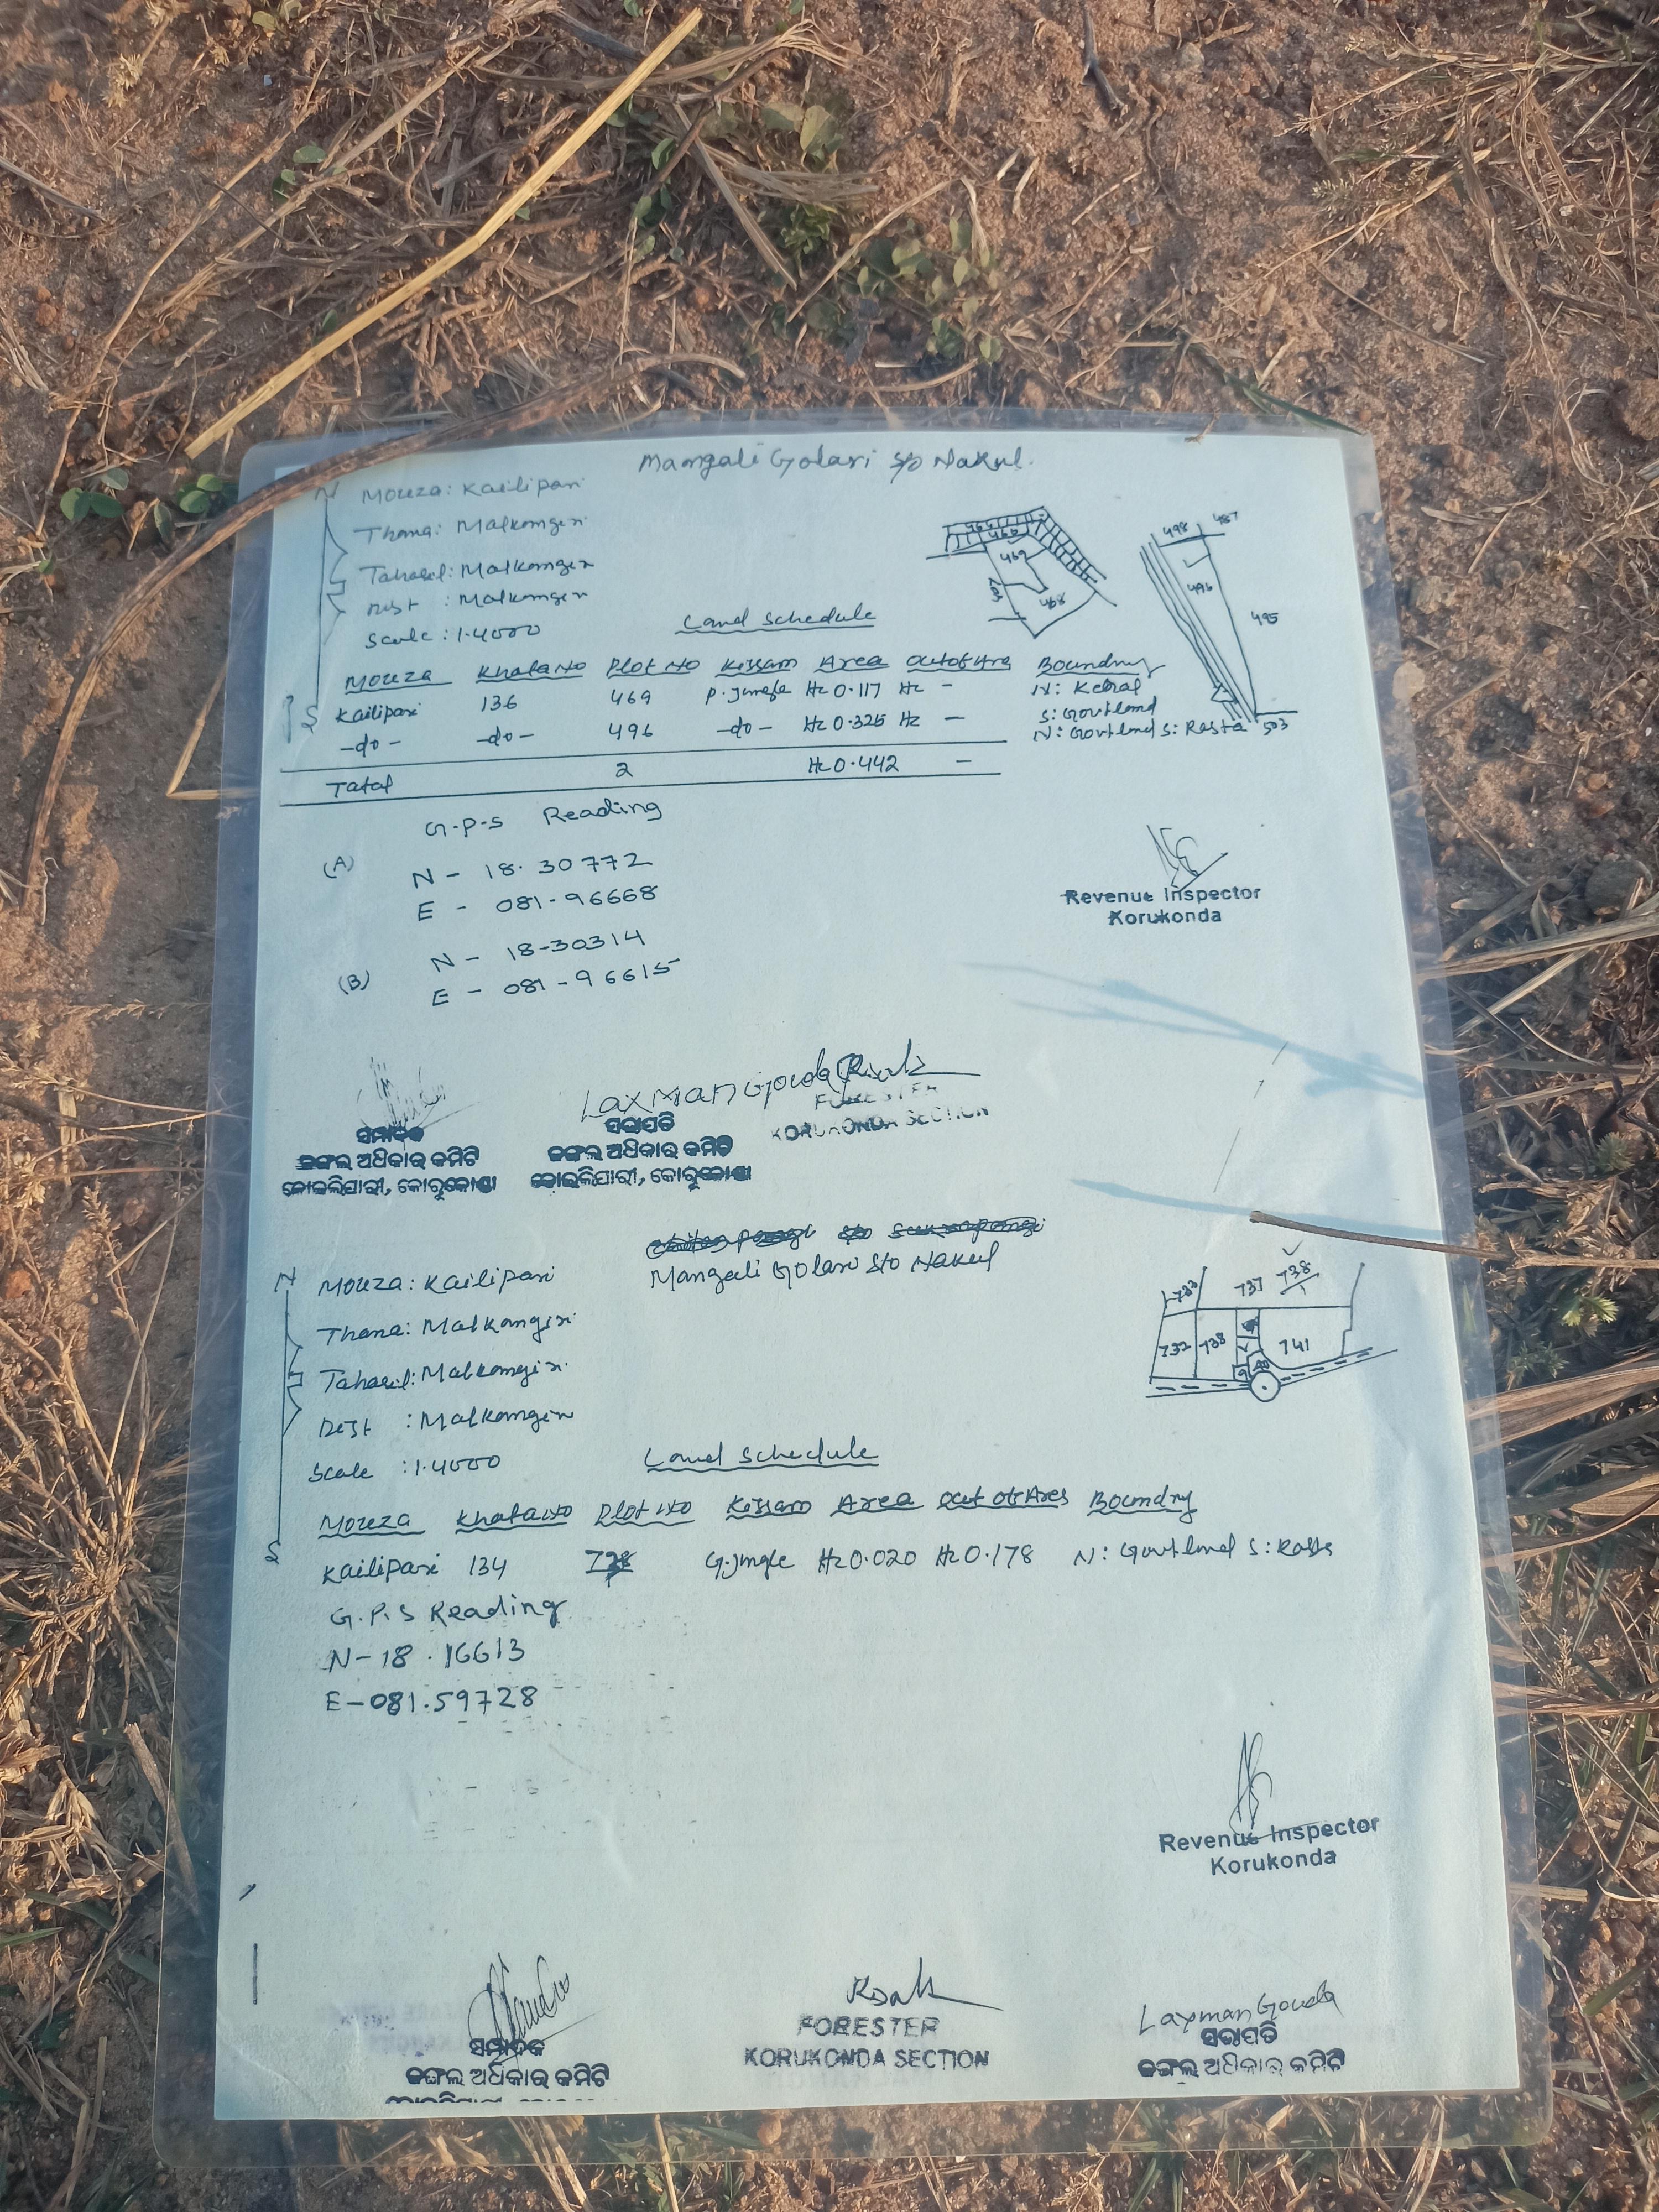 Mangali Golari S/o Nakul.
N
Mouza: Kailipari
Thana: Malkangiri
Tahasil: Malkangiri
Dist : Malkangiri
Scale : 1.4000
S
469
468
498 487
496
495
503
Land Schedule
Mouza Khata No Plot No Kissam Area Out of Area Boundry
Kailipari 136 469 P. Jungle Hc 0.117 Hc - N:
S: Govt land
-do- -do- 496 -do- Hc 0.325 Hc - N: Govt land S: Rasta
Total 2 Hc 0.442 -
G.P.S Reading
(A) N - 18.30772
E - 081-96668
(B) N - 18-30314
E - 081-96615
Revenue Inspector
Korukonda
Laxman Gouda
ସମ୍ପାଦକ
ଜଙ୍ଗଲ ଅଧିକାର କମିଟି
କୋଇଲିପାରୀ, କୋରୁକୋଣ୍ଡା
ସଭାପତି
ଜଙ୍ଗଲ ଅଧିକାର କମିଟି
କୋଇଲିପାରୀ, କୋରୁକୋଣ୍ଡା
FORESTER
KORUKONDA SECTION
Mangali Golari S/o Nakul
N
Mouza: Kailipari
Thana: Malkangiri
Tahasil: Malkangiri
Dist : Malkangiri
Scale : 1.4000
S
733 737 738
1
732 738 741
Land Schedule
Mouza Khata No Plot No Kissam Area Out of Area Boundry
Kailipari 134 G. Jungle Hc 0.020 Hc 0.178 N: Govt land S: Rasta
G.P.S Reading
N-18.16613
E-081.59728
Revenue Inspector
Korukonda
ସମ୍ପାଦକ
ଜଙ୍ଗଲ ଅଧିକାର କମିଟି
FORESTER
KORUKONDA SECTION
Laxman Gouda
ସଭାପତି
ଜଙ୍ଗଲ ଅଧିକାର କମିଟି